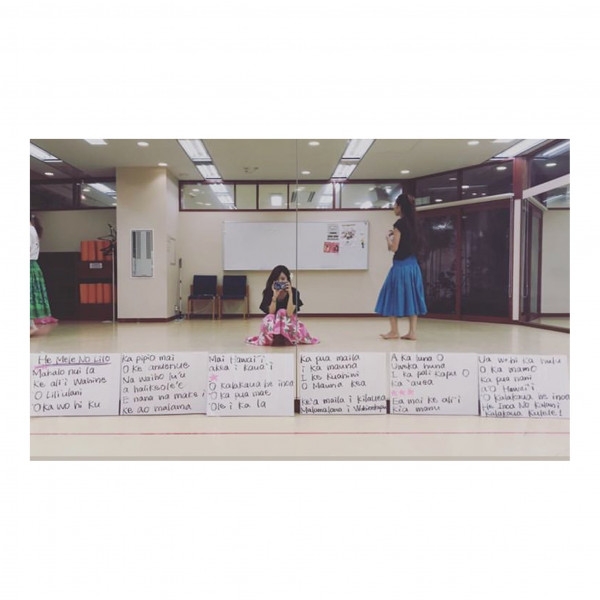 He Mele No Lilo
Mahalo nui ia
Ke ali'i Wahine
O Lili'ulani
O ka wohi ku
Ka pipio mai
O ke anuenue
Na waiho lu'u
a halikeole'e
E nana na maka i
ke ao malama
Mai Hawai'i
a i Kaua'i
O Kalakaua he inoa
O ka pua mae
'Ole i ka la
Ka pua maila
i ka mauna
I ke Kuahiwi
O Mauna kea
Ke'a maila i Kilauea
Malamalama i
A ka luna O
Uwēka huna
I ka pali kapu O
Ka 'auea
Ea mai ke ali'i
kia manu
Ua wohi ka hulu
O ka mamo
Ka pua nani
a'o Hawai'i
O Kalakaua he inoa
He Inoa No Kalani
Kalakaua Kulele!